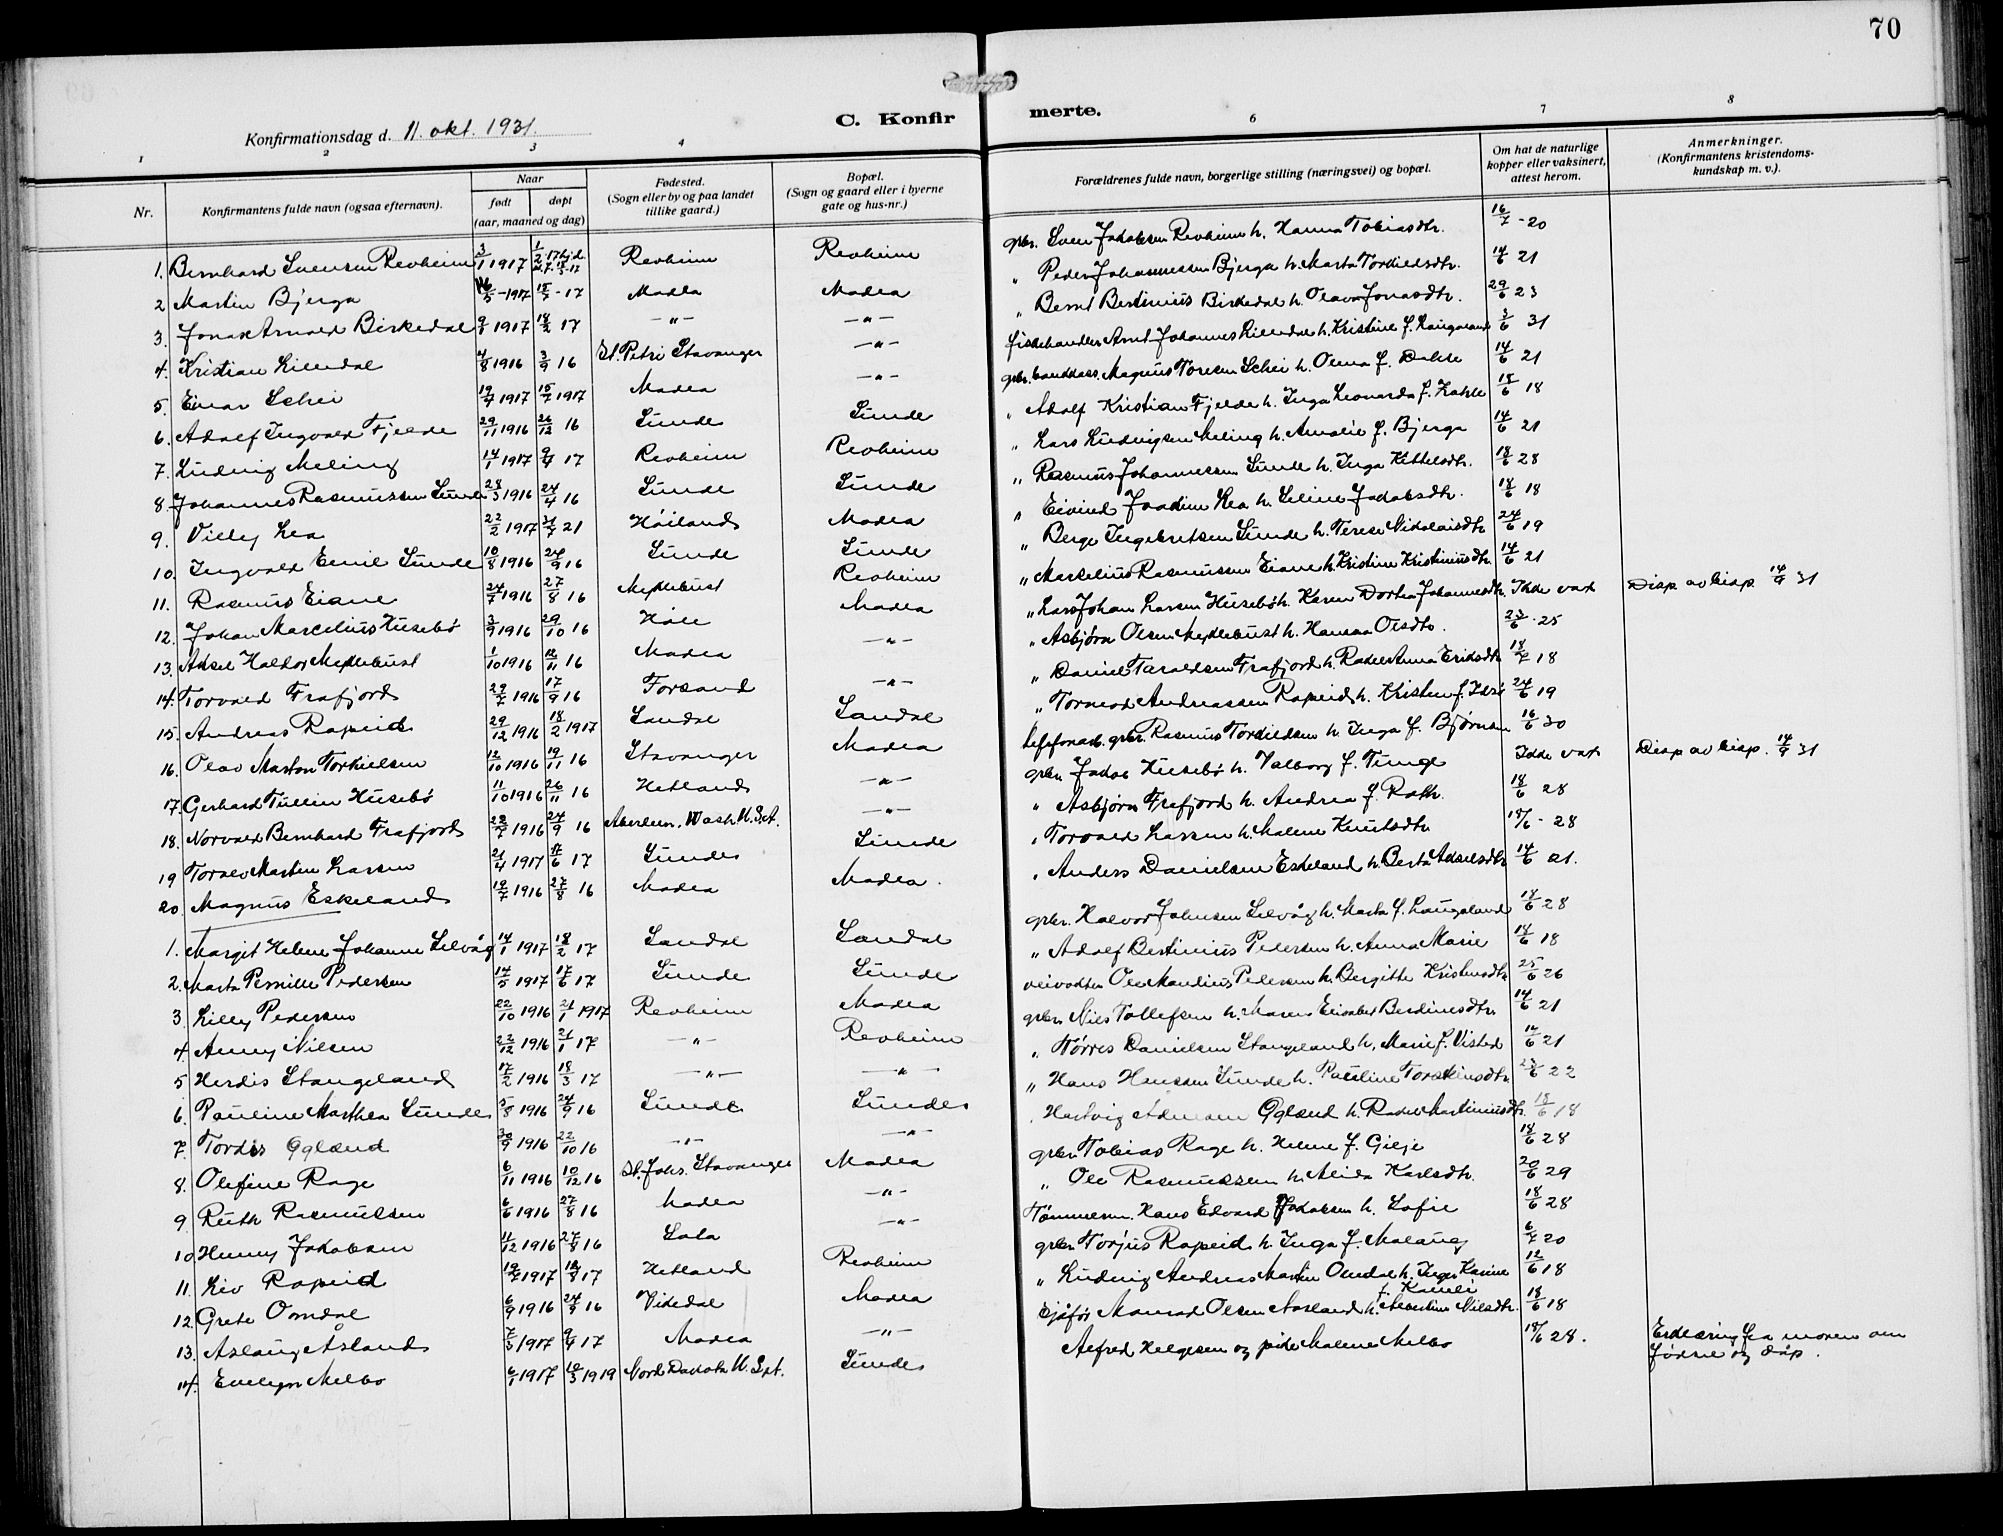 70
Konfirmationsdag d. 11. okt. 1931.
C. Konfirmerte.
1 2 3 4 6 7 8
Nr. Konfirmantens fulde navn (ogsaa efternavn). Naar født døpt (aar, maaned og dag) Fødested. (Sogn eller by og paa landet tillike gaard.) Bopæl. (Sogn og gaard eller i byerne gate og hus-nr.) Forældrenes fulde navn, borgerlige stilling (næringsvei) og bopæl. Om hat de naturlige kopper eller vaksinert, attest herom. Anmerkninger. (Konfirmantens kristendomskundskap m. v.).
1. Bernhard Svensen Revheim 3/1 1917 Revheim Revheim gbr. Sven Jakobsen Revheim h. Hanna Tobiasdtr. 16/7 - 20
2 Martin Bjerga 16/5 - 1917 15/7 - 17 Madla Madla " Peder Johannessen Bjerga h. Marta Torkildsdtr. 14/6 21
3. Jonas Arnold Birkedal 9/1 1917 18/2 17 -"- -"- " Bernt Bertinius Birkedal h. Olava Jonasdtr. 29/6 23
4. Kristian Lilledal 4/8 1916 3/9 16 St. Petri Stavanger -"- fiskehandler Arnt Johannes Lilledal h. Kristine f. Haugaland 3/6 31
5. Einar Schei 19/4 1917 15/7 1917 Madla -"- gbr. landdass. Magnus Toresen Schei h. Olena f. Dahle 14/6 21
6. Adolf Ingvald Fjelde 29/11 1916 26/12 16 Sunde Sunde " Adolf Kristian Fjelde h. Inga Leonarda f. Kahle 18/6 18
7. Ludvig Meling 14/1 1917 9/4 17 Revheim Revheim " Lars Ludvigsen Meling h. Amalie f. Bjerga 14/6 21
8. Johannes Rasmussen Sunde 28/3 1916 24/4 16 Sunde Sunde " Rasmus Johannessen Sunde h. Inga Kittelsdtr. 18/6 28
9. Villy Lea 22/2 1917 24/7 21 Høiland Madla " Eivind Joakim Lea h. Seline Jakobsdtr. 18/6 18
10. Ingvald Emil Sunde 10/8 1916 24/9 16 Sunde Sunde " Berge Ingebretsen Sunde h. Terese Nikolaisdtr. 24/6 19
11. Rasmus Eiane 24/7 1916 27/8 16 Myklebust Revheim " Markelius Rasmussen Eiane h. Kristine Kristiniusdtr. 14/6 21
12. Johan Marcelius Husebø 3/9 1916 29/10 16 Høle Madla " Lars Johan Larsen Husebø h. Karen Dortea Johannesdtr. Ikke vax Disp av bisp 14/9 31
13. Aksel Haldor Myklebust 1/10 1916 12/11 16 Madla -"- " Asbjørn Olsen Myklebust h. Hanna Olsdtr. 23/6 - 25
14. Torvald Frafjord 29/7 1916 17/9 16 Forsand -"- " Daniel Taraldsen Frafjord h. Rakel Anna Eriksdtr. 18/7 18
15. Andreas Rapeid 29/12 1916 18/2 1917 Sandal Sandal " Tormod Andreassen Rapeid h. Kristen f. Idsø 24/6 19
16. Olav Marton Torkielsen 12/10 1916 19/11 16 Stavanger Madla telefonarb. gbr. Rasmus Torkildsen h. Inga f. Bjørnsen 16/6 30
17. Gerhard Tullin Husebø 11/10 1916 26/11 16 Hetland -"- gbr. Jakob Husebø h. Valborg f. Tunge Ikke vax Disp av bisp. 14/9 31
18. Norvald Bernhard Frafjord 28/7 1916 24/9 16 Aberdeen. Wash U.S.A. -"- " Asbjørn Frafjord h. Andrea f. Rath. 18/6 28
19 Torlev Martin Larsen 21/4 1917 17/6 17 Sunde Sunde " Torvald Larsen h. Malene Knutsdtr. 18/6 - 28
20. Magnus Eskeland 12/7 1916 27/8 16 Madla Madla. " Anders Danielsen Eskeland h. Berta Akselsdtr. 14/6 21.
1. Margit Helene Johanne Selvåg 14/1 1917 18/2 17 Sandal Sandal gbr. Halvor Johnsen Selvåg h. Marta f. Haugaland 18/6 28
2. Marta Pernille Pedersen 14/5 1917 17/6 17 Sunde Sunde " Adolf Bertinius Pedersen h. Anna Marie 18/6 18
3. Lilly Pedersen 22/10 1916 21/1 1917 Revheim Madla veivokter Ole Mandius Pedersen h. Bergitte Kristensdtr. 25/6 26
4 Anny Nilsen 22/12 1916 21/1 17 -"- Revheim gbr. Niels Tollefsen h. Maren Elisabet Berdinesdtr. 14/6 21
5 Herdis Stangeland 17/2 1916 18/3 17 -"- -"- " Tørres Danielsen Stangeland h. Marie f. Visted 14/6 21
6. Pauline Marthea Sunde 5/8 1916 24/9 16 Sunde Sunde " Hans Hansen Sunde h. Pauline Torsteinsdtr. 23/6 22
7. Tordis Oglænd 30/9 1916 22/10 16 -"- -"- " Hartvig Adnesen Oglænd h. Rakel Martiniusdtr. 18/6 18
8. Olefine Rage 6/11 1916 10/12 16 St. Johs. Stavanger Madla gbr. Tobias Rage h. Helene f. Gilje 18/6 28
9. Ruth Rasmussen 6/6 1916 27/8 16 Madla -"- " Ole Rasmussen h. Alida Karlsdtr. 20/6 29
10. Henny Jakobsen 11/12 1916 27/8 16 Sola -"- Tømmerm. Hans Edvard Jakobsen h. Sofie 18/6 28
11. Liv Rapeid 19/7 1917 12/8 17 Hetland Revheim gbr. Torjus Rapeid h. Inga f. Malaug 6/7 20
12. Grete Omdal 6/9 1916 24/9 16 Vikedal Madla " Ludvig Andreas Martin Omdal h. Inger Karine f. Kaneli 12/6 18
13. Aslaug Åsland 7/3 1917 9/4 17 Madla -"- Sjåfør Manrad Olsen Aasland h. Albertine Nilsdtr. 18/6 18
14. Evelyn Melbo 6/1 1917 16/3 1919 Nord Dakota U.S.A. Sunde Alfred Helgesen og pike Malene Melbo 18/6 28. Erklæring fra moren om fødsel og dåp.